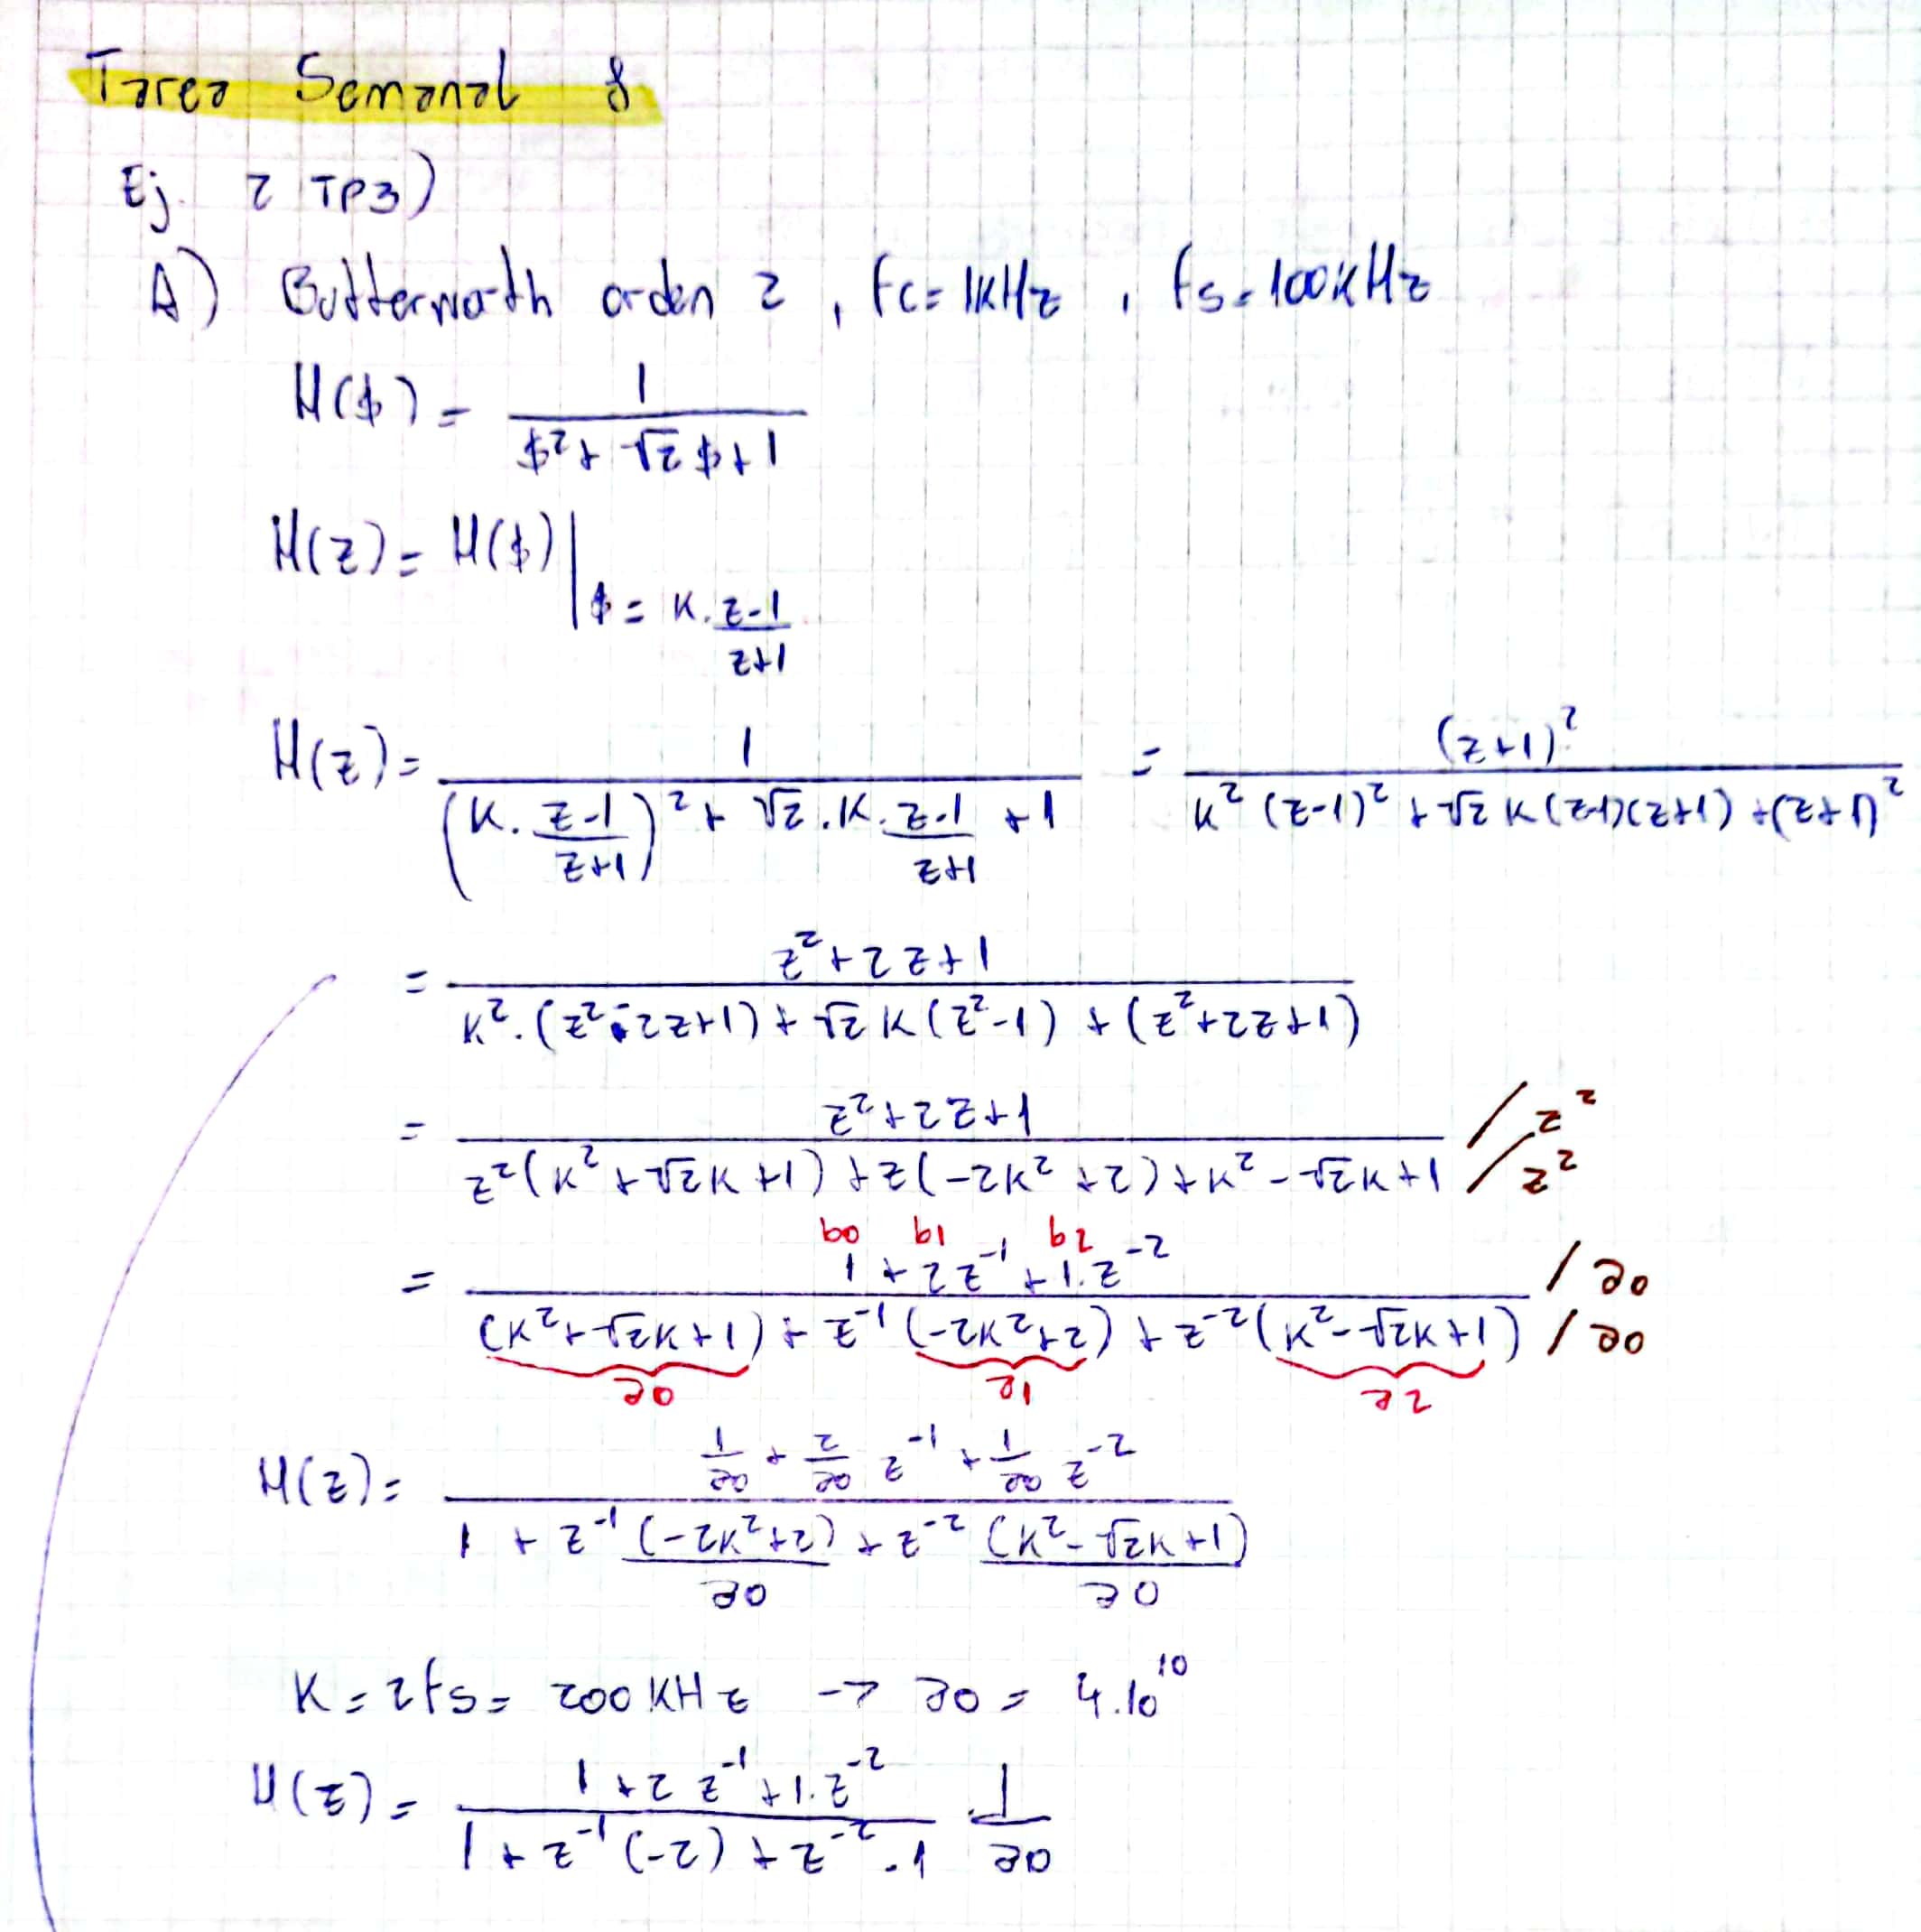 Tarea Semanal 8
Ej. 2 TP3)
A) Butterworth orden 2, fc= 1kHz , fs= 100KHz
H($) = 1 / ($² + √2 $ + 1)
H(z) = H($) | $ = K. (z-1)/(z+1)
H(z) = 1 / ((K. (z-1)/(z+1))² + √2 . K. (z-1)/(z+1) + 1) = (z+1)² / (K² (z-1)² + √2 K (z-1)(z+1) + (z+1)²)
= (z² + 2z + 1) / (K². (z² - 2z+1) + √2 K (z²-1) + (z²+2z+1))
= (z² + 2z + 1) / (z² (K² + √2K + 1) + z(-2K² + 2) + K² - √2K + 1) /z² /z²
b0 b1 b2
= (1 + 2z⁻¹ + 1.z⁻²) / ((K²+√2K+1) + z⁻¹ (-2K²+2) + z⁻² (K²-√2K+1)) /a0 /a0
a0 a1 a2
H(z) = (1/a0 + 2/a0 z⁻¹ + 1/a0 z⁻²) / (1 + z⁻¹ (-2K²+2)/a0 + z⁻² (K²-√2K+1)/a0)
K = 2fs = 200KHz -> a0 = 4.10¹⁰
H(z) = (1 + 2 z⁻¹ + 1.z⁻²) / (1 + z⁻¹ (-2) + z⁻² . 1) . 1/a0